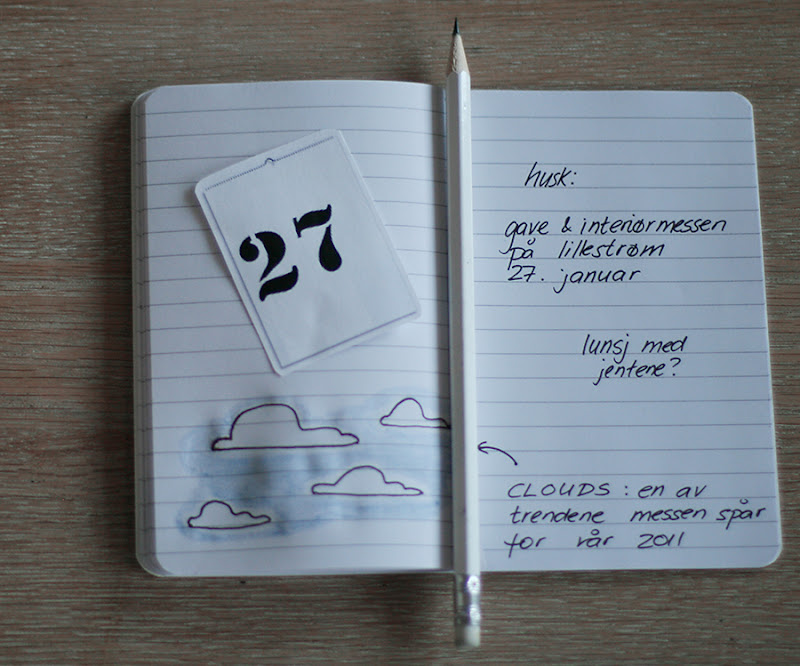 27
husk:
gave & interiørmessen
på lillestrøm
27. januar
lunsj med
jentene?
CLOUDS : en av
trendene messen spår
for vår 2011